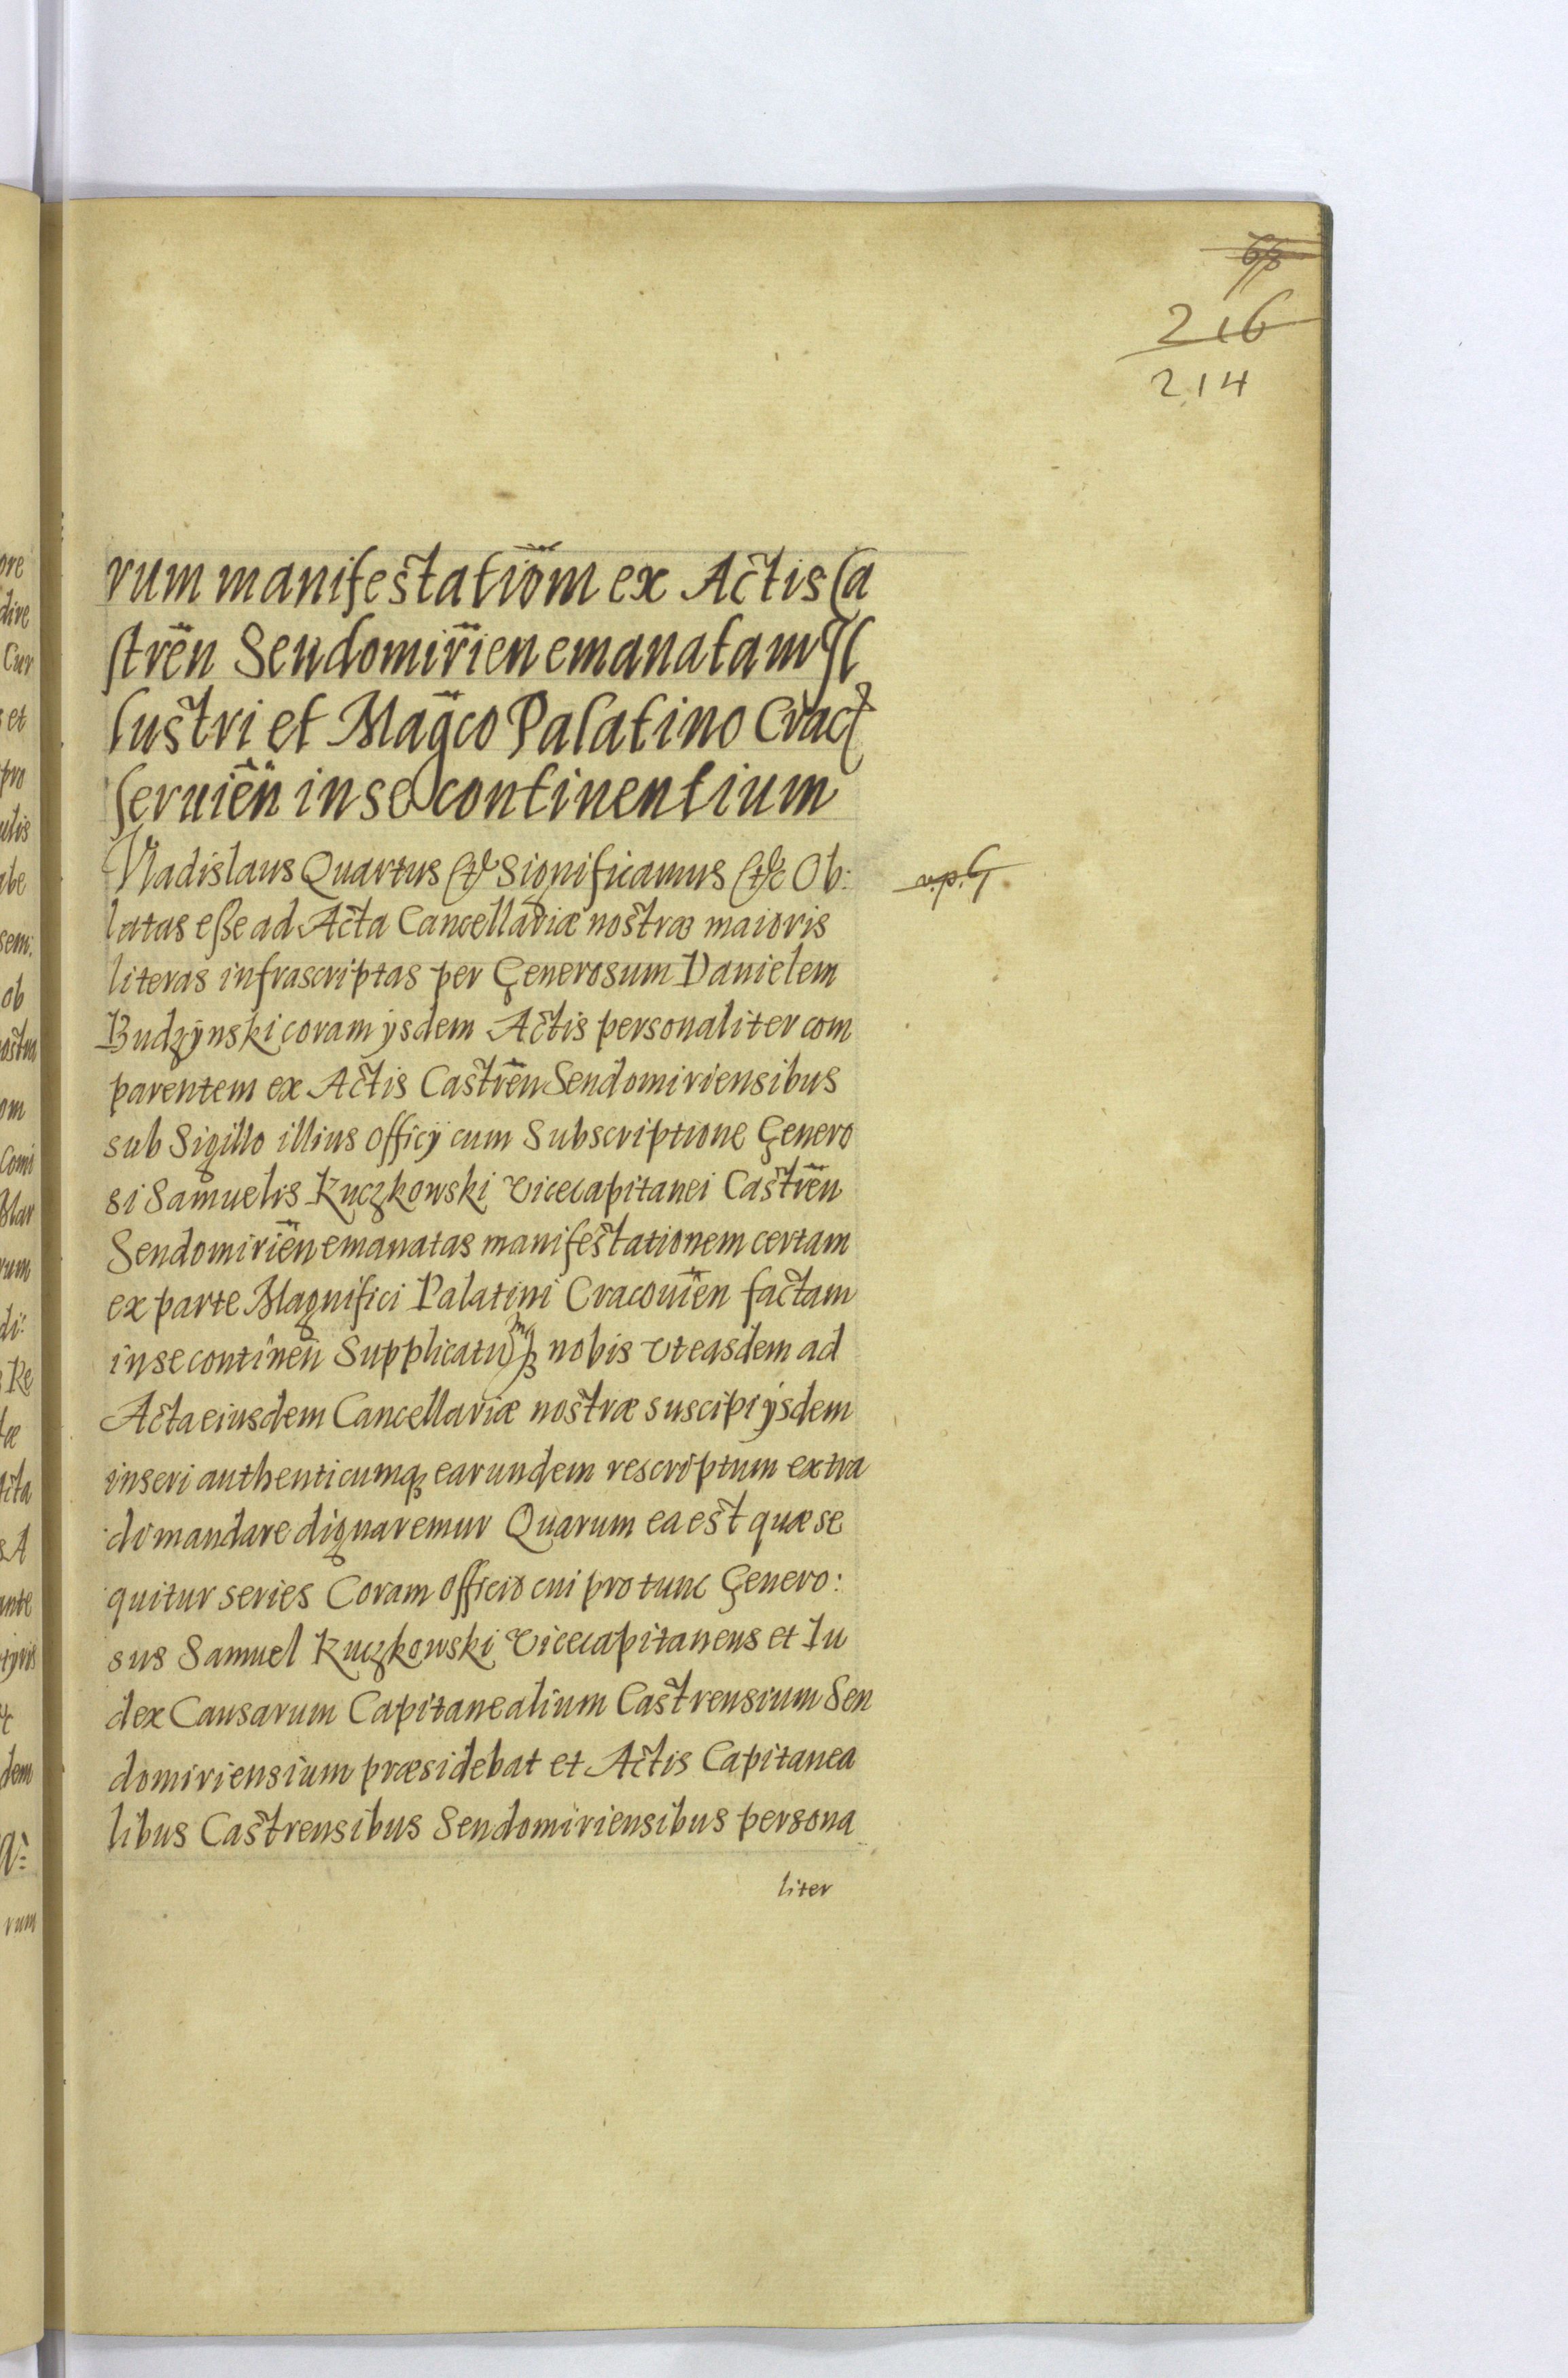 68
216
214
rum manifestatiõm ex Actis Ca
stren̄ Sendomirien̄ emanatam Il
lustri et Mag̃co Palatino Crac:
seruien̄ in se continentium
Vladislaus Quartus &c Significamus &c Ob:
latas eße ad Acta Cancellariæ nostræ maioris
literas infrascriptas per Generosum Danielem
Budzÿnski coram ijsdem Actis personaliter com
parentem ex Actis Castren̄ Sendomiriensibus
sub Sigillo illius officij cum Subscriptione Genero
si Samuelis Kuczkowski Vicecapitanei Castren̄
Sendomirien̄ emanatas manifestationem certam
ex parte Magnifici Palatini Cracouien̄ factam
in se continen̄ Supplicatumq nobis vt easdem ad
Acta eiusdem Cancellariæ nostræ suscipi ijsdem
inseri authenticumq earundem rescriptum extra
di mandare dignaremur Quarum ea est quæ se
quitur series Coram officio cui pro tunc Genero:
sus Samuel Kuczkowski Vicecapitaneus et Iu
dex Causarum Capitanealium Castrensium Sen
domiriensium præsidebat et Actis Capitanea
libus Castrensibus Sendomiriensibus persona
liter